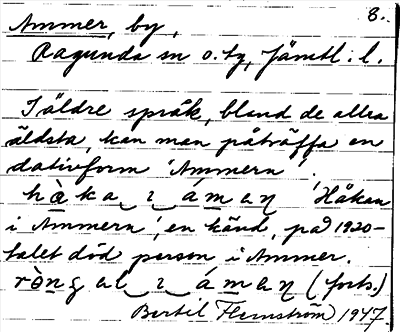 8.
Ammer, by,
Ragunda sn o. tg, Jämtl. l.
I äldre språk, bland de allra
äldsta, kan man påträffa en
dativform 'Ammern'.
hàka ɩ ámaꞑ 'Håkan
i Ammern', en känd, på 1920-
talet död person i Ammer.
(forts.)
Bertil Flemström 1947